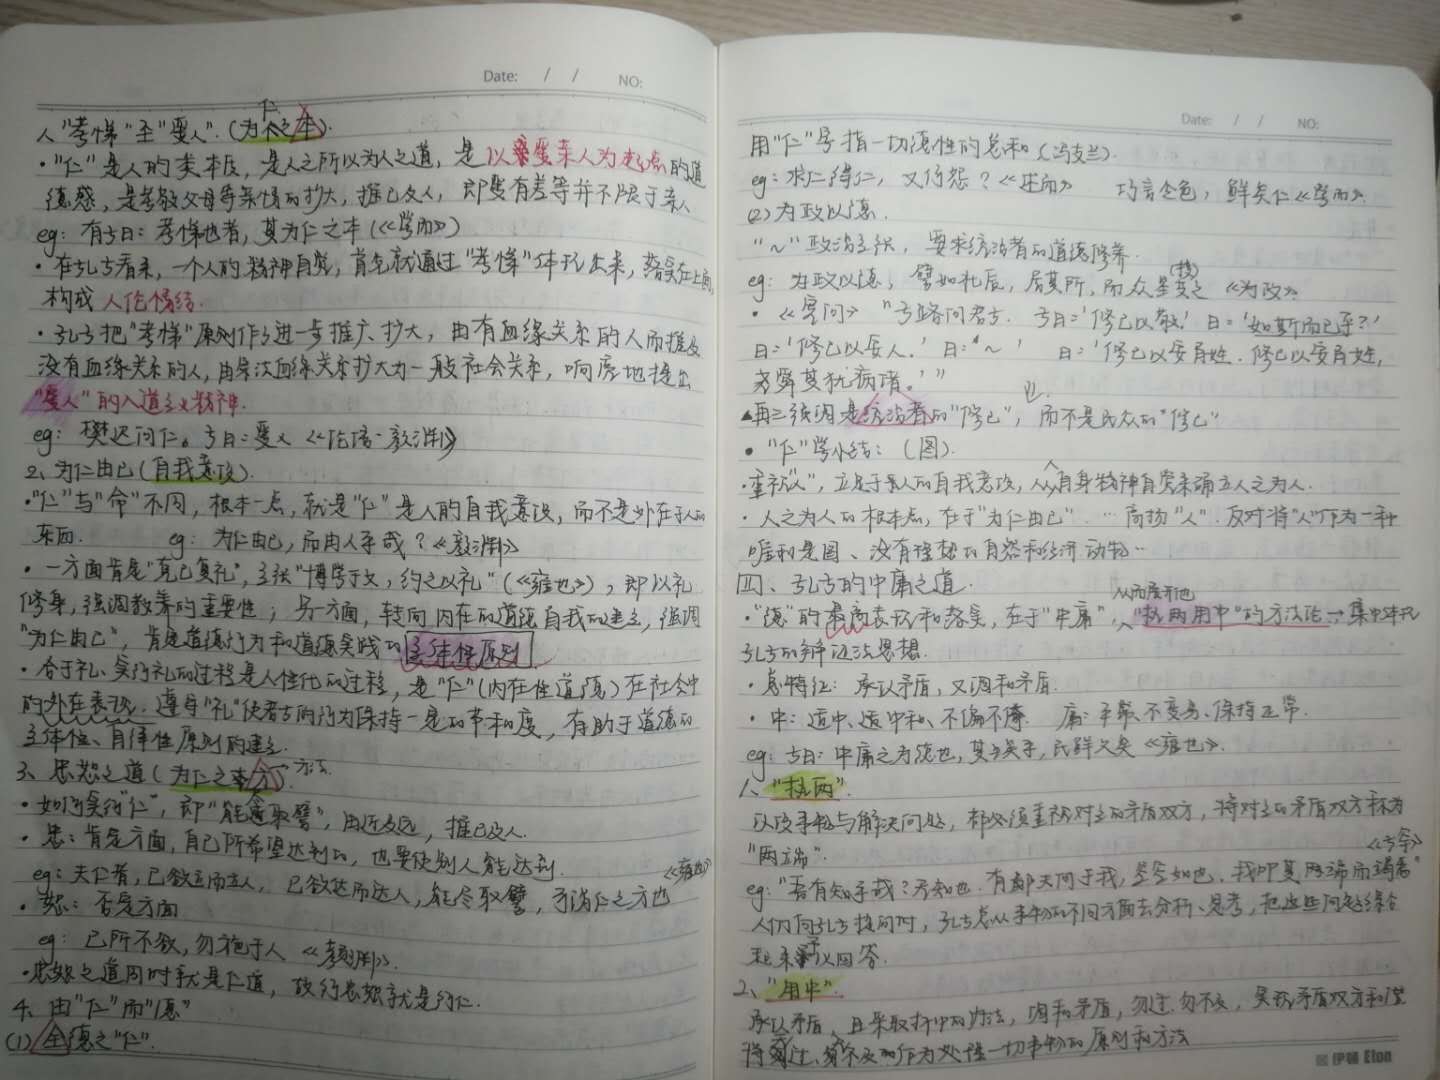 Date: / / NO:
人"孝悌"至"爱人".(为仁之本).
·"仁"是人的类本质,是人之所以为人之道,是以爱亲人为起点的道
德感,是孝敬父母等亲情的扩大,推己及人,即爱有差等并不限于亲人
eg:有子曰:孝悌也者,其为仁之本(《学而》)
·在孔子看来,一个人的精神自觉,首先就通过"孝悌"体现出来,落实在上面,
构成人伦情结.
·孔子把"孝悌"原则作了进一步推广、扩大,由有血缘关系的人而推及
没有血缘关系的人,由宗法血缘关系扩大为一般社会关系,响亮地提出
"爱人"的人道主义精神.
eg:樊迟问仁。子曰:爱人《论语·颜渊》
2、为仁由己(自我意识).
·"仁"与"命"不同,根本一点,就是"仁"是人的自我意识,而不是外在于人的
东西. eg:为仁由己,而由人乎哉?《颜渊》
·一方面肯定"克己复礼",主张"博学于文,约之以礼"(《雍也》),即以礼
修身,强调教养的重要性;另一方面,转向内在的道德自我的建立,强调
"为仁由己",肯定道德行为和道德实践的主体性原则.
·合于礼、实行礼的过程是人性化的过程,是"仁"(内在性道德)在社会中
的外在表现.遵守"礼"使君子的行为保持一定的节和度,有助于道德的
主体性、自律性原则的建立.
3、忠恕之道(为仁之方)→方法.
·如何实行"仁",即"能近取譬",由近及远,推己及人.
·忠:肯定方面,自己所希望达到的,也要使别人能达到.
eg:夫仁者,己欲立而立人,己欲达而达人,能尽取譬,可谓仁之方也《雍也》
·恕:否定方面
eg:己所不欲,勿施于人《颜渊》.
·忠恕之道同时就是仁道,故行忠恕就是行仁.
4、由"仁"而"德"
(1)全德之"仁".
Date: / / NO:
用"仁"字指一切德性的总和(冯友兰).
eg:求仁得仁,又何怨?《述而》 巧言令色,鲜矣仁《学而》.
(2)为政以德.
"~"政治主张,要求统治者的道德修养.
eg:为政以德,譬如北辰,居其所,而众星(拱)之《为政》
·《宪问》"子路问君子.子曰:'修己以敬.'曰:'如斯而已乎?'
曰:'修己以安人.'曰:'~' 曰:'修己以安百姓.修己以安百姓,
尧舜其犹病诸.'"
▲再三强调是统治者的"修己",而不是民众的"修己"也.
·"仁"学小结:(图).
·重视"人",立足于人的自我意识,从人自身精神自觉来确立人之为人.
·人之为人的根本点,在于"为仁由己"…高扬"人".反对将"人"作为一种
唯利是图、没有理想的自然和经济动物…
四、孔子的中庸之道.
·"德"的最高表现和落实,在于"中庸",从而展开他"执两用中"的方法论→集中体现
孔子的辩证法思想.
·总特征:承认矛盾,又调和矛盾.
·中:适中、适中和、不偏不倚. 庸:平常、不变易、保持正常.
eg:子曰:中庸之为德也,其至矣乎,民鲜久矣《雍也》.
1、"执两"
认识事物与解决问题,都必须重视对立的矛盾双方,将对立的矛盾双方称为
"两端".
eg:"吾有知乎哉?无知也.有鄙夫问于我,空空如也.我叩其两端而竭焉"《子罕》
人们向孔子提问时,孔子总从事物的不同方面去分析、思考,把这些问题综合
起来予以回答.
2、"用中".
承认矛盾,且采取折中的方法,调和矛盾,勿过勿不及,实现矛盾双方和谐
将勿过、勿不及的作为处理一切事物的原则和方法
伊顿 Eton